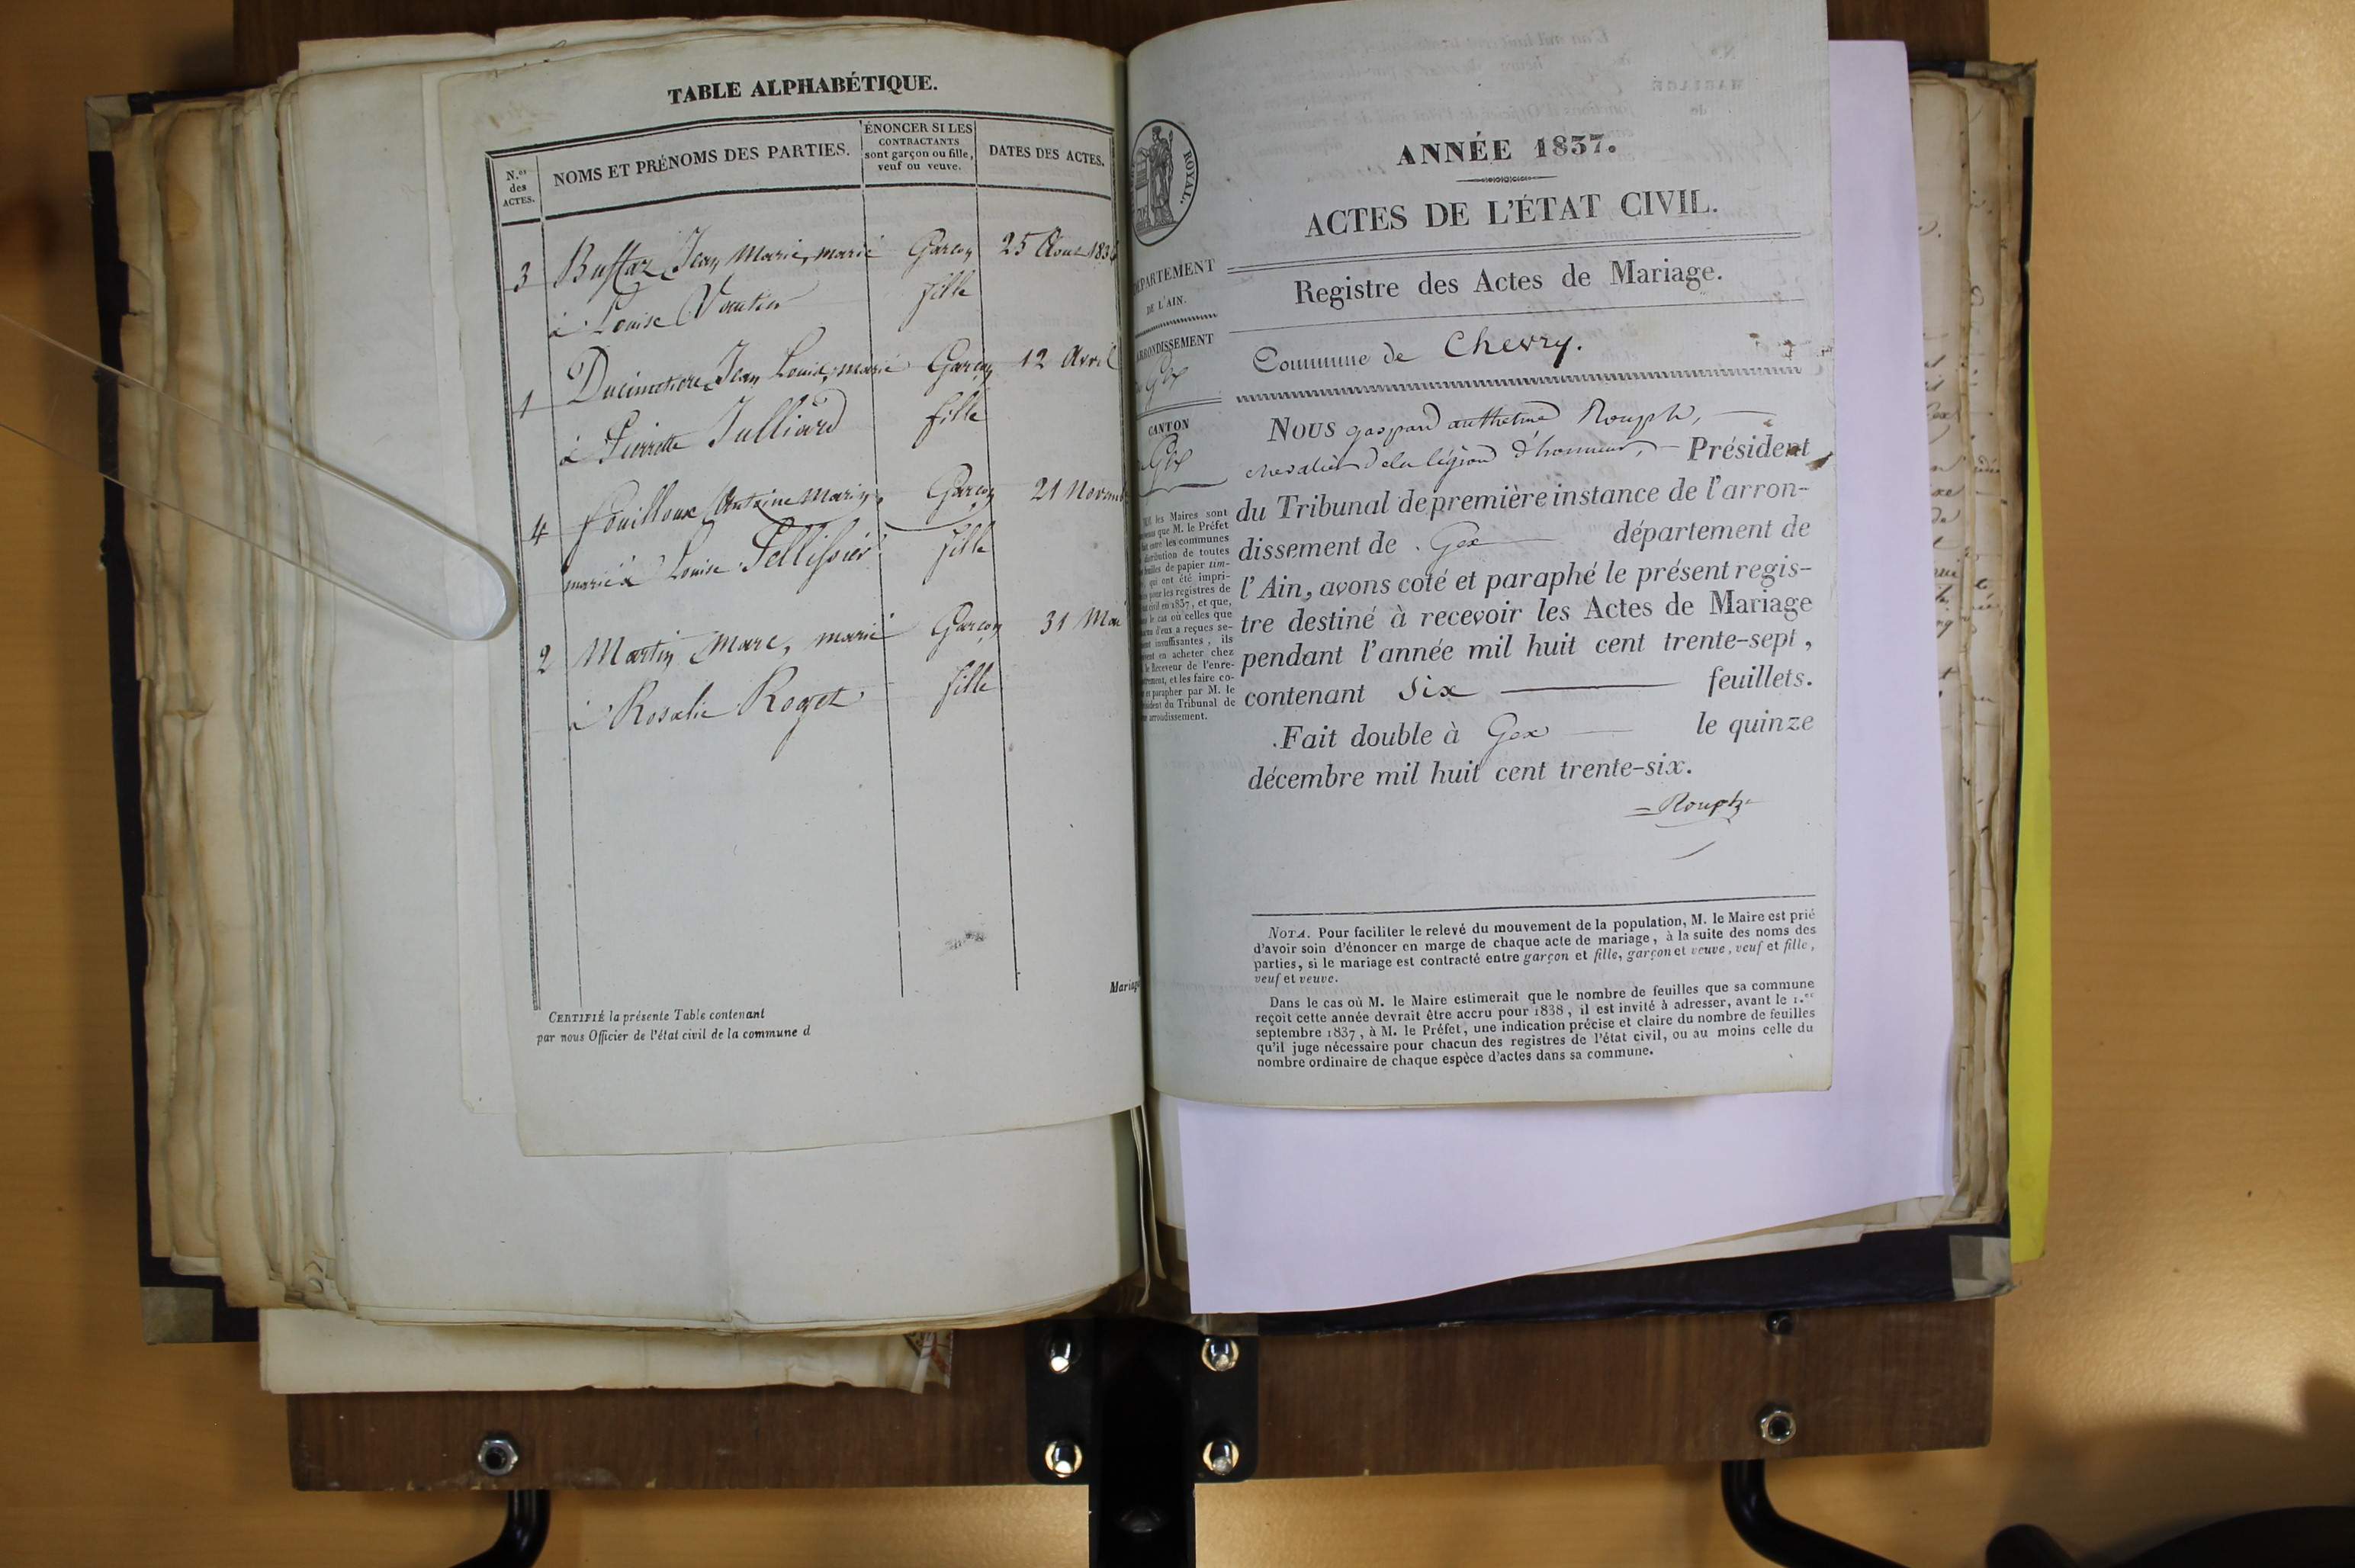 TABLE ALPHABÉTIQUE.
N.os des ACTES.
NOMS ET PRÉNOMS DES PARTIES.
ÉNONCER SI LES
CONTRACTANTS
sont garçon ou fille,
veuf ou veuve.
DATES DES ACTES.
3 Buffaz Jean Marie, marié Garçon 25 Aout
à Louise Vautier fille
1 Ducimetiere Jean Louis, marié Garçon 12 Avril
à Pierrette Julliard fille
4 fouilloux Antoine Marin, Garçon 21
marié à Louise Pellissier fille
2 Martin Marc, marié Garçon 31 Mai
à Rosalie Roget fille
Mariage
CERTIFIÉ la présente Table contenant
par nous Officier de l'état civil de la commune d
ROYAL.
DÉPARTEMENT
DE L'AIN.
ARRONDISSEMENT
Gex
CANTON
Gex
les Maires sont
que M. le Préfet
les communes
de toutes
de papier tim-
qui ont été impri-
pour les registres de
civil en 1837, et que,
le cas où celles que
d'eux a reçues se-
insuffisantes, ils
en acheter chez
le Receveur de l'enre-
et les faire co-
et parapher par M. le
du Tribunal de
arrondissement.
ANNÉE 1837.
ACTES DE L'ÉTAT CIVIL.
Registre des Actes de Mariage.
Commune de Chevry.
NOUS gaspard anthelme Rouph,
chevalier de la légion d'honneur, Président
du Tribunal de première instance de l'arron-
dissement de Gex département de
l'Ain, avons coté et paraphé le présent regis-
tre destiné à recevoir les Actes de Mariage
pendant l'année mil huit cent trente-sept,
contenant six feuillets.
Fait double à Gex le quinze
décembre mil huit cent trente-six.
Rouph
NOTA. Pour faciliter le relevé du mouvement de la population, M. le Maire est prié
d'avoir soin d'énoncer en marge de chaque acte de mariage, à la suite des noms des
parties, si le mariage est contracté entre garçon et fille, garçon et veuve, veuf et fille,
veuf et veuve.
Dans le cas où M. le Maire estimerait que le nombre de feuilles que sa commune
reçoit cette année devrait être accru pour 1838, il est invité à adresser, avant le 1.er
septembre 1837, à M. le Préfet, une indication précise et claire du nombre de feuilles
qu'il juge nécessaire pour chacun des registres de l'état civil, ou au moins celle du
nombre ordinaire de chaque espèce d'actes dans sa commune.